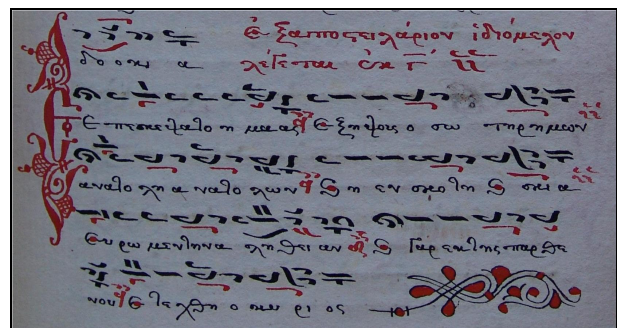 Ἐξαποστειλάριον ἰδιόμελον
λέγεται ἐκ γ΄
Ε πεσκεψατο η μα ας Ε ξηψους ο σω τηρ ημων
ανατο λη α νατο λων ϗ η εν σκοτη ϗ σκι α
Ευρω μεν την α ληθει αν ϗ Γαρ εκ της παρθε
νου Ε τεχθη ο κυ ρι ος